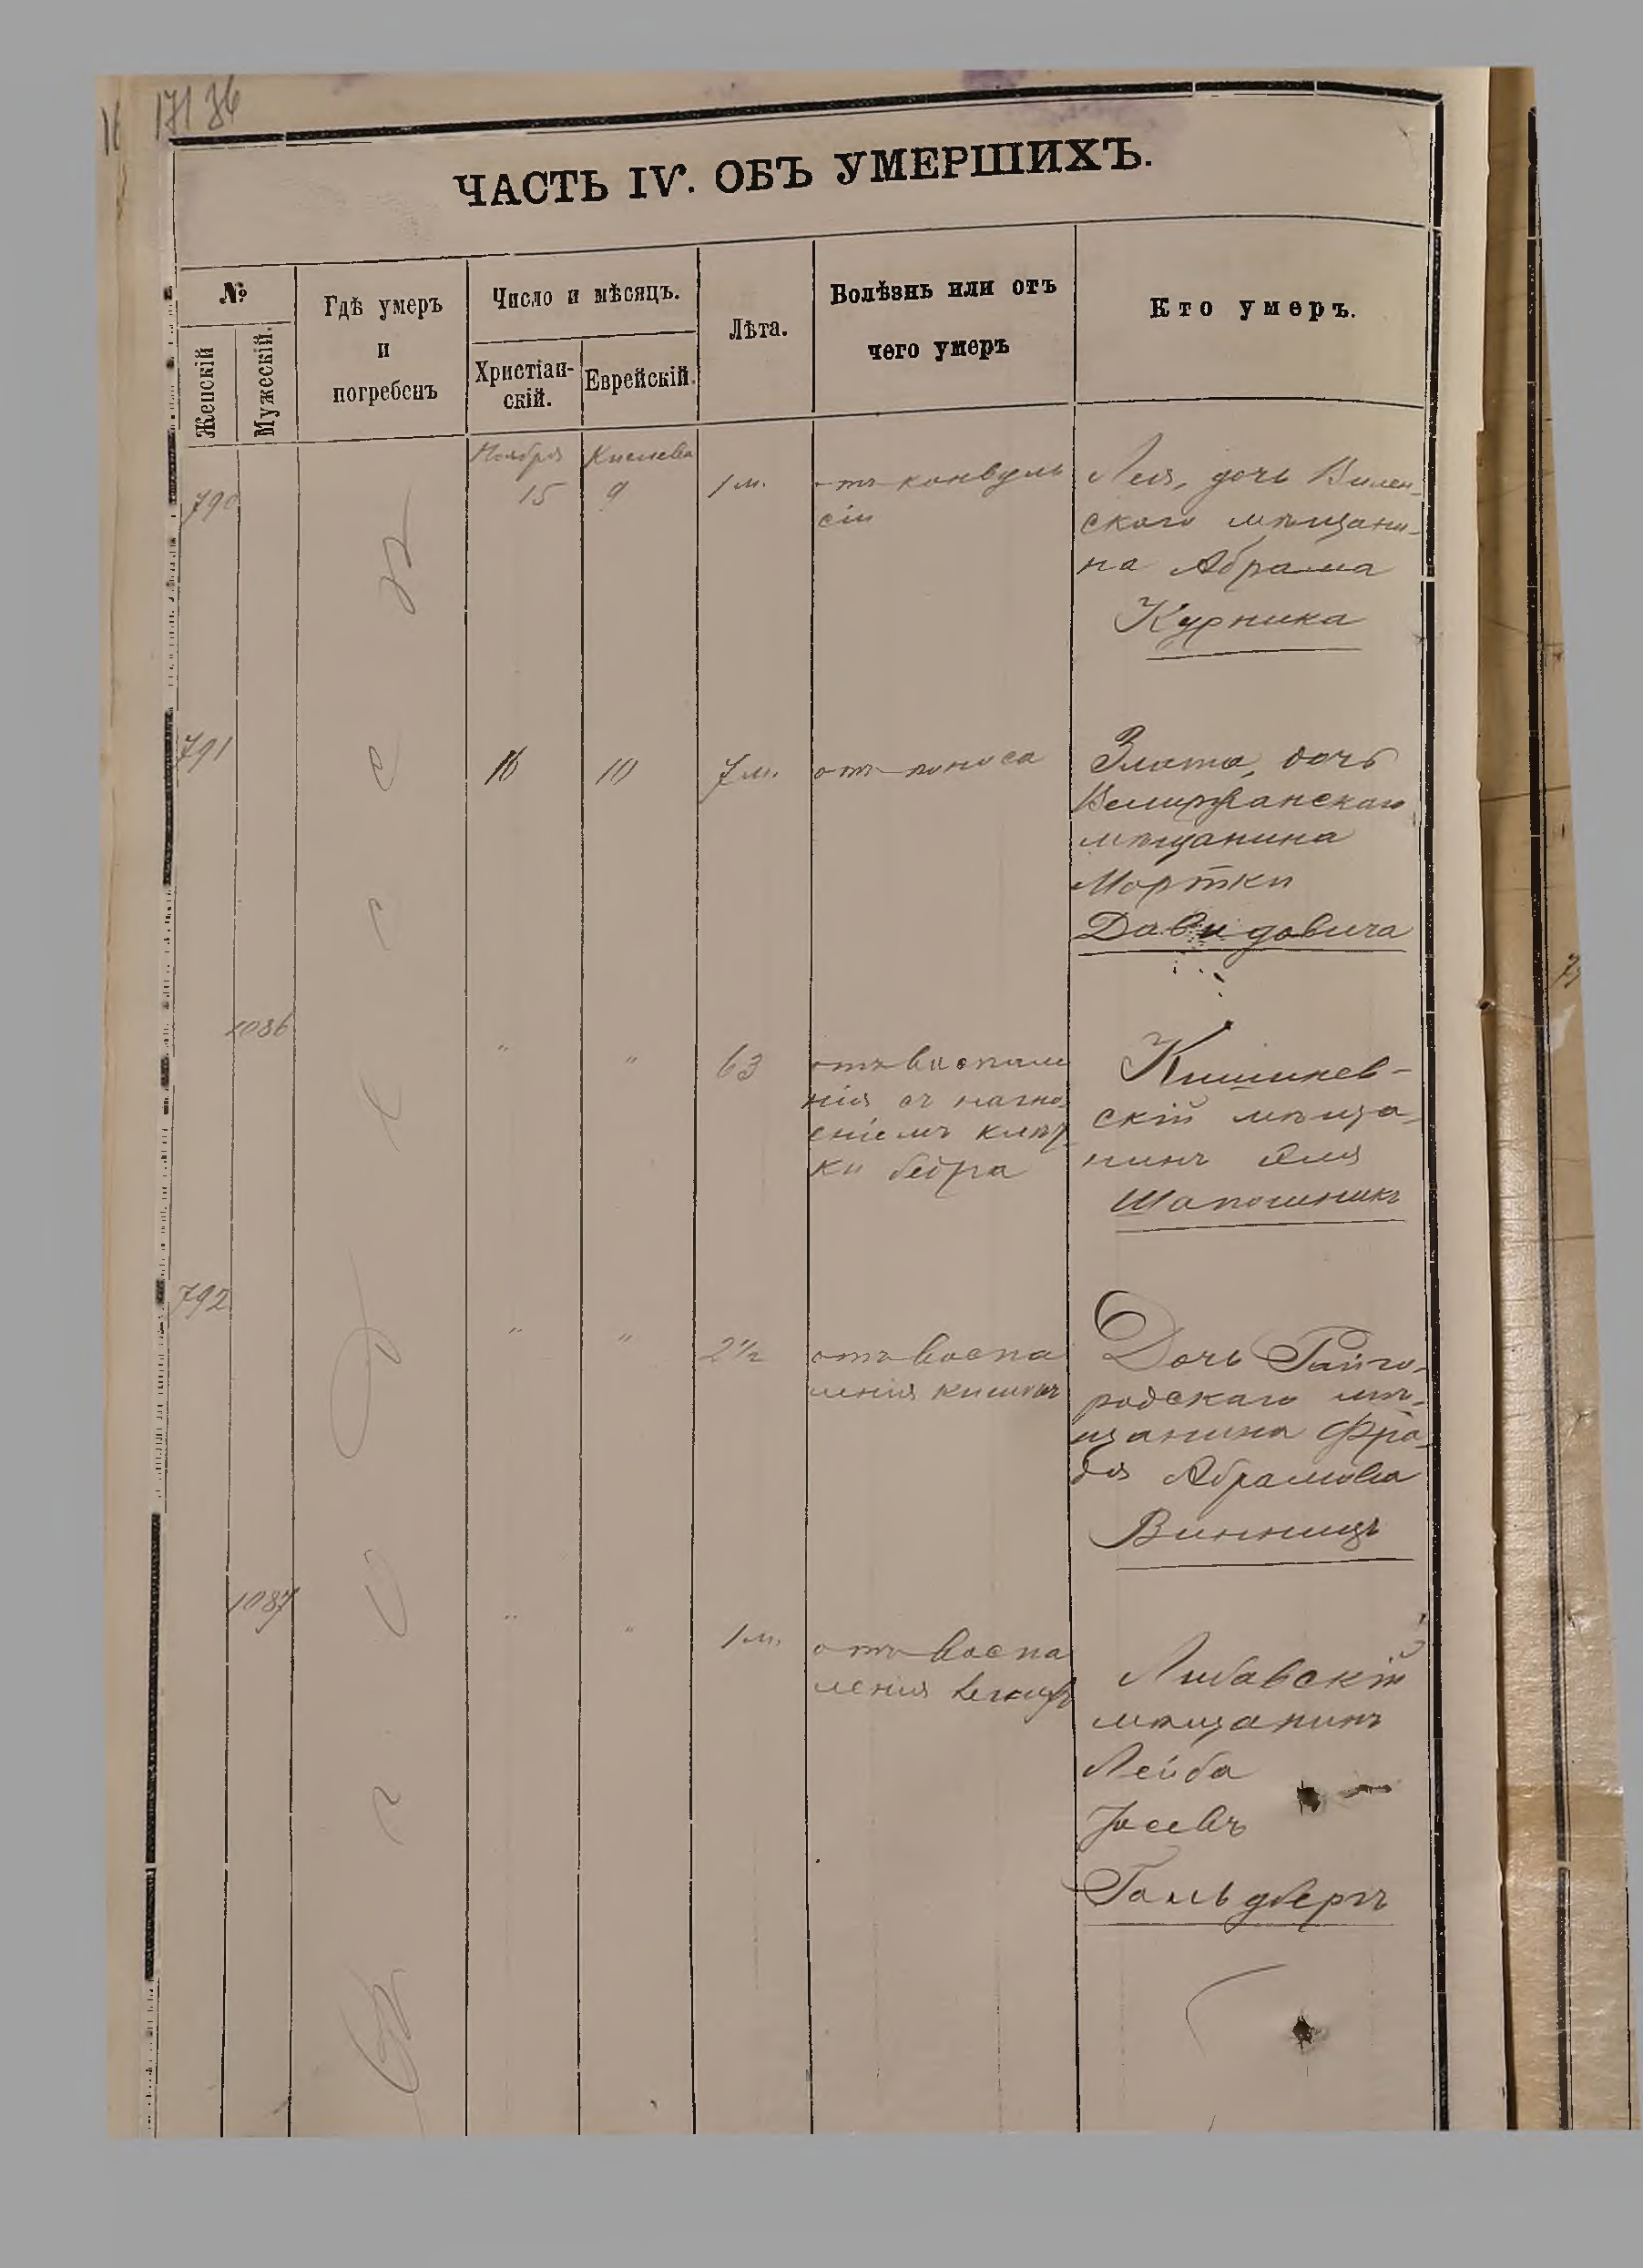 171 36
ЧАСТЬ IV. ОБЪ УМЕРШИХЪ.
№
Женскій
Мужескій.
Гдѣ умеръ
и
погребенъ
Число и мѣсяцъ.
Христіан-
скій.
Еврейскій.
Лѣта.
Болѣзнь или отъ
чего умеръ
Кто умеръ.
въ г. Одессѣ
790
Ноября
15
Кислева
9
1 м.
отъ конвуль
сіи
Лея, дочь Вилен-
ского мѣщани-
на Абрама
Курника
791
16
10
7 м.
отъ поноса
Злата, дочь
Велижанскаго
мѣщанина
Мортки
Давидовича
1086
"
"
63
отъ воспале
нія съ нагно-
еніемъ клѣт-
ки бедра
Кишинев-
скій мѣща-
нинъ Эля
Шапошникъ
792
"
"
2 1/2
отъ воспа
ленія кишекъ
Дочь Райго-
родскаго мѣ-
щанина Фра-
дя Абрамова
Винницъ
1087
"
"
1 м.
отъ воспа
ленія легкихъ
Либавскій
мѣщанинъ
Лейба
Іосевъ
Гольдбергъ